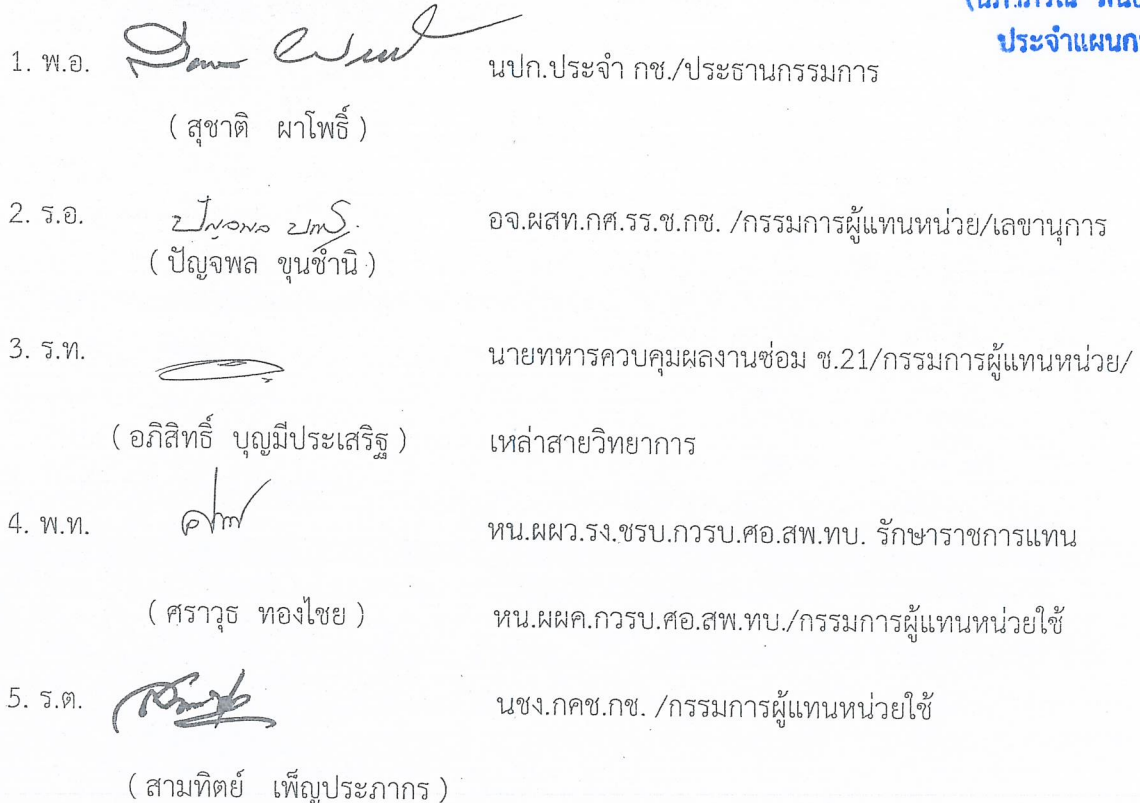 ประจำแผนก
1. พ.อ. นปก.ประจำ กช./ประธานกรรมการ
( สุชาติ ผาโพธิ์ )
2. ร.อ. ปัญจพล อจ.ผสท.กศ.รร.ช.กช. /กรรมการผู้แทนหน่วย/เลขานุการ
( ปัญจพล ขุนชำนิ )
3. ร.ท. นายทหารควบคุมผลงานซ่อม ช.21/กรรมการผู้แทนหน่วย/
( อภิสิทธิ์ บุญมีประเสริฐ ) เหล่าสายวิทยาการ
4. พ.ท. หน.ผผว.รง.ชรบ.กวรบ.ศอ.สพ.ทบ. รักษาราชการแทน
( ศราวุธ ทองไชย ) หน.ผผค.กวรบ.ศอ.สพ.ทบ./กรรมการผู้แทนหน่วยใช้
5. ร.ต. นชง.กคช.กช. /กรรมการผู้แทนหน่วยใช้
( สามทิตย์ เพ็ญประภากร )